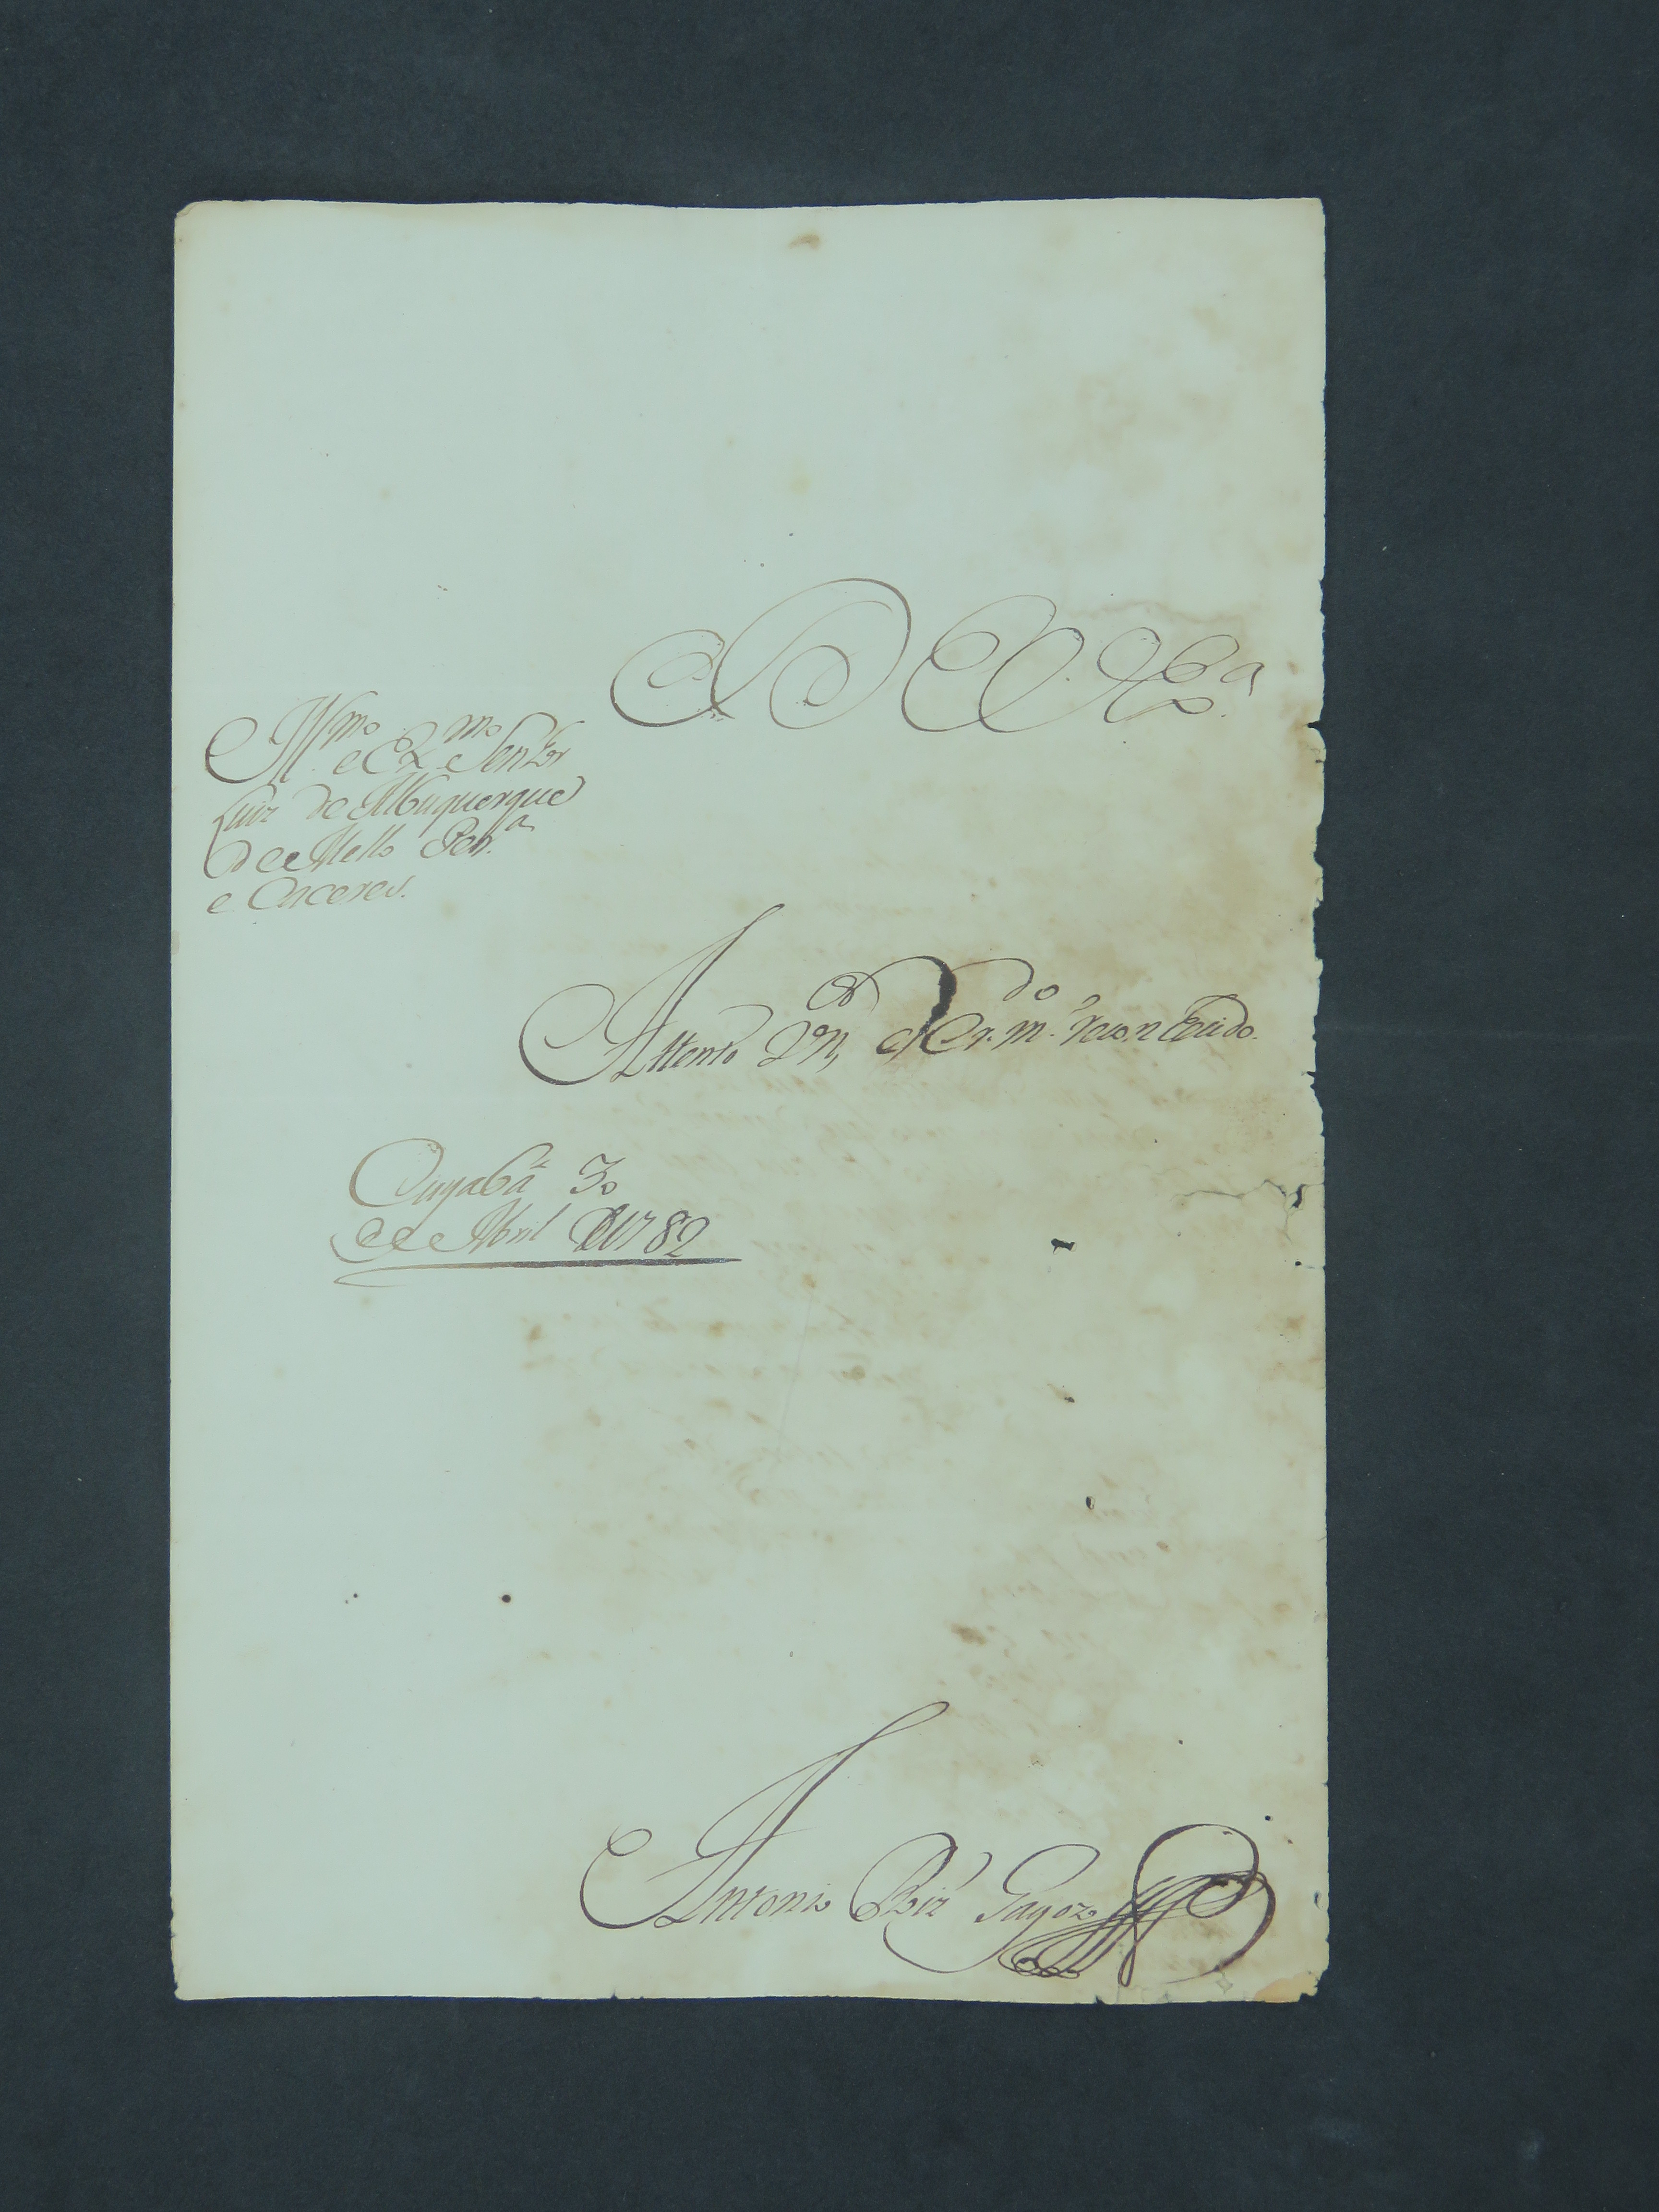 De V. Exª
Illmo e Exmo Senhor
Luiz de Albuquerque
de Mello Perª
e Caceres.
Attento Vor e Cr.do mº reconhecido.
Cuyabá 30
de Abril d 1782
Antonio Roiz Gayozo